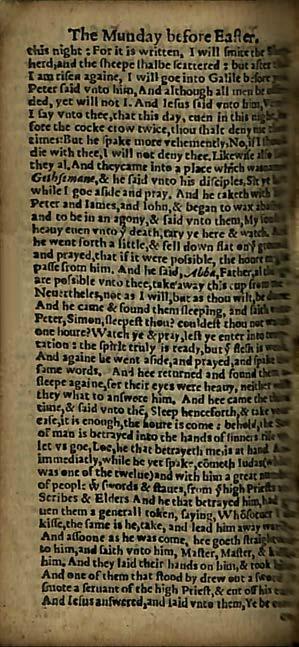 The Munday before Easter.
this night: For it is written, I will smite the
herd, and the sheepe shalbe scattered: but after
I am risen againe, I will goe into Galile before
Peter said vnto him, And although all men be
ded, yet will not I. And Iesus said vnto him,
I say vnto thee, that this day, euen in this night,
fore the cocke crow twice, thou shalt deny me
times: But he spake more vehemently, No, if I
die with thee, I will not deny thee. Likewise also
they al. And they came into a place which was
Gethsemane, & he said vnto his disciples, Sit ye
while I goe aside and pray. And he taketh with
Peter and Iames, and Iohn, & began to wax
and to be in an agony, & said vnto them, My
heauy euen vnto yͤ death, tary ye here & watch.
he went forth a little, & fell down flat on yͤ
and prayed, that if it were possible, the houre
passe from him. And he said, Abba, Father, al
are possible vnto thee, take away this cup from me
Neuertheles, not as I will, but as thou wilt, be
And he came & found them sleeping, and saith
Peter, Simon, sleepest thou? couldest thou not
one houre? Watch ye & pray, lest ye enter into
tation: the spirit truly is ready, but yͤ flesh is
And againe he went aside, and prayed, and spake
same words. And hee returned and found them
sleepe againe, for their eyes were heauy, neither
they what to answere him. And hee came the
time, & said vnto thē, Sleep henceforth, & take
ease, it is enough, the houre is come: behold, the
of man is betrayed into the hands of sinners
let vs goe, Loe, he that betrayeth me is at hand
immediatly, while he yet spake, cōmeth Iudas
was one of the twelue) and with him a great
of people wͭ swords & staues, from yͤ high Priests
Scribes & Elders And he that betrayed him, had
uen them a generall token, saying, Whosoeuer
kisse, the same is he, take, and lead him away
And assoone as he was come, hee goeth straight
to him, and saith vnto him, Master, Master, &
him. And they laid their hands on him, & took
And one of them that stood by drew out a
smote a seruant of the high Priest, & cut off his
And Iesus answered, and said vnto them, Ye be